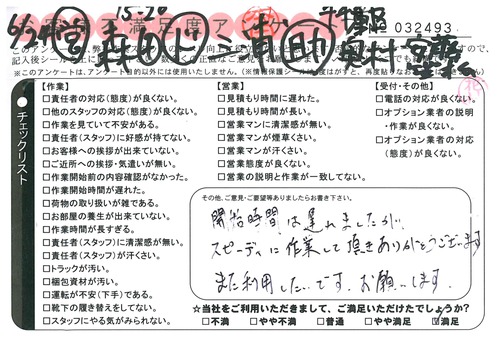 15-20
No 032493
※このアンケートは、アンケート目的以外には使用いたしません。
チェックリスト
【作業】
□責任者の対応(態度)が良くない。
□他のスタッフの対応(態度)が良くない。
□作業を見ていて不安がある。
□責任者(スタッフ)に好感が持てない。
□お客様への挨拶が出来ていない。
□ご近所への挨拶・気遣いが無い。
□作業開始前の内容確認がなかった。
□作業開始時間が遅れた。
□荷物の取り扱いが雑である。
□お部屋の養生が出来ていない。
□作業時間が長すぎる。
□責任者(スタッフ)に清潔感が無い。
□責任者(スタッフ)が汗くさい。
□トラックが汚い。
□梱包資材が汚い。
□運転が不安(下手)である。
□靴下の履き替えをしてない。
□スタッフにやる気がみられない。
【営業】
□見積もり時間に遅れた。
□見積もり時間が長い。
□営業マンに清潔感が無い。
□営業マンが煙草くさい。
□営業マンが汗くさい。
□営業態度が良くない。
□営業の説明と作業が一致してない。
【受付・その他】
□電話の対応が良くない。
□オプション業者の説明
・作業が良くない。
□オプション業者の対応
(態度)が良くない。
その他、ご意見・ご要望等ありましたらお書き下さい。
開始時間は遅れましたが、
スピーディに作業して頂きありがとうございます
また利用したいです。お願いします。
☆当社をご利用いただきまして、ご満足いただけたでしょうか?
□不満 □やや不満 □普通 □やや満足 ☑満足